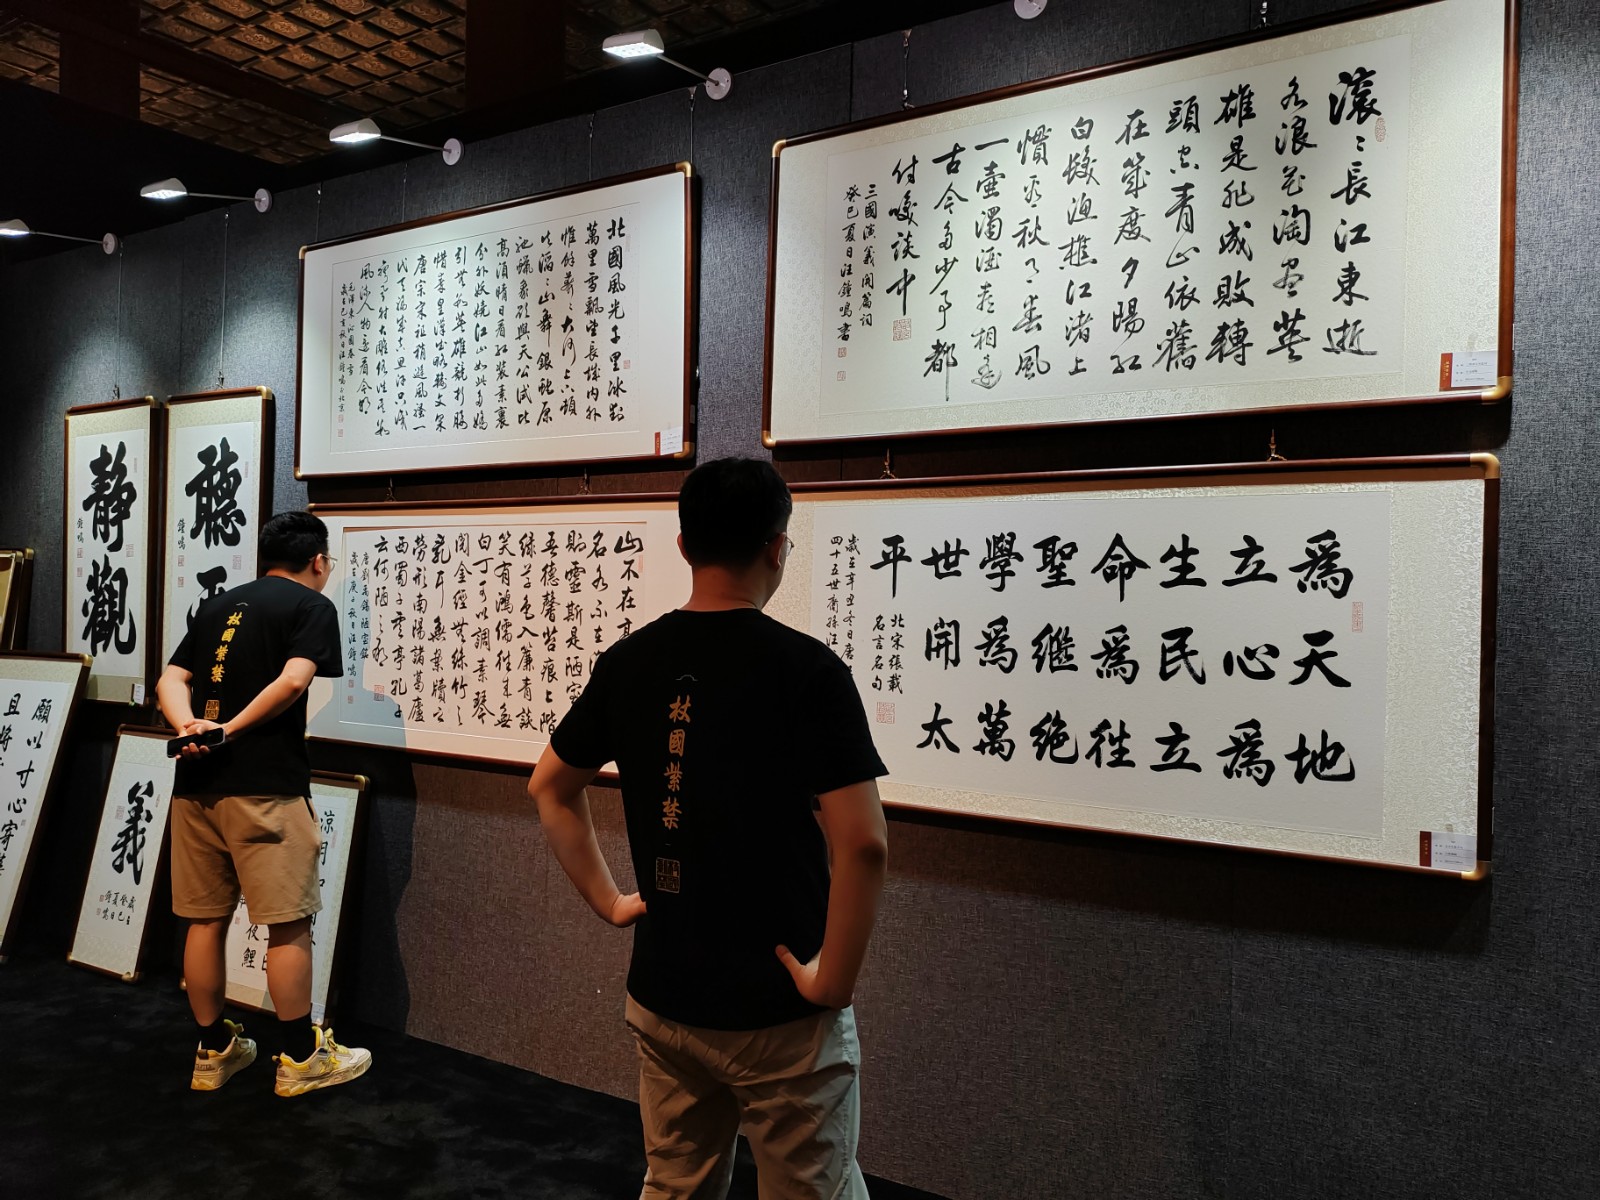 滾〻長江東逝
水浪花淘盡英
雄是非成敗轉
頭空青山依舊
在幾度夕陽紅
白髮漁樵江渚上
慣看秋月春風
一壺濁酒喜相逢
古今多少事都
付笑談中
三國演義開篇詞
癸巳夏日汪鐘鳴書
北國風光千里冰封
萬里雪飄望長城內外
惟餘莽〻大河上下頓
失滔〻山舞銀蛇原
馳蠟象欲與天公試比
高須晴日看紅裝素裹
分外妖嬈江山如此多嬌
引無數英雄競折腰
惜秦皇漢武略輸文采
唐宗宋祖稍遜風騷一
代天驕成吉思汗只識
彎弓射大雕俱往矣數
風流人物還看今朝
毛澤東沁園春雪
歲在己亥秋日汪鐘鳴於北京
爲天地
立心爲
生民立
命爲往
聖繼絕
學爲萬
世開太
平
北宋張載
名言名句
歲在辛丑冬日唐
四十五世裔孫汪
山不在高
名水不在
則靈斯是陋室
吾德馨苔痕上階
綠草色入簾青談
笑有鴻儒往來無
白丁可以調素琴
閱金經無絲竹之
亂耳無案牘之
勞形南陽諸葛廬
西蜀子雲亭孔子
云何陋之有
唐劉禹錫陋室銘
歲在庚子秋日汪鐘鳴
聽
鐘鳴
靜觀
鐘鳴
願以寸心寄
且將
義
歲在癸巳
夏日
鐘鳴
涼月
夜
鯉
杖國紫禁
杖國紫禁